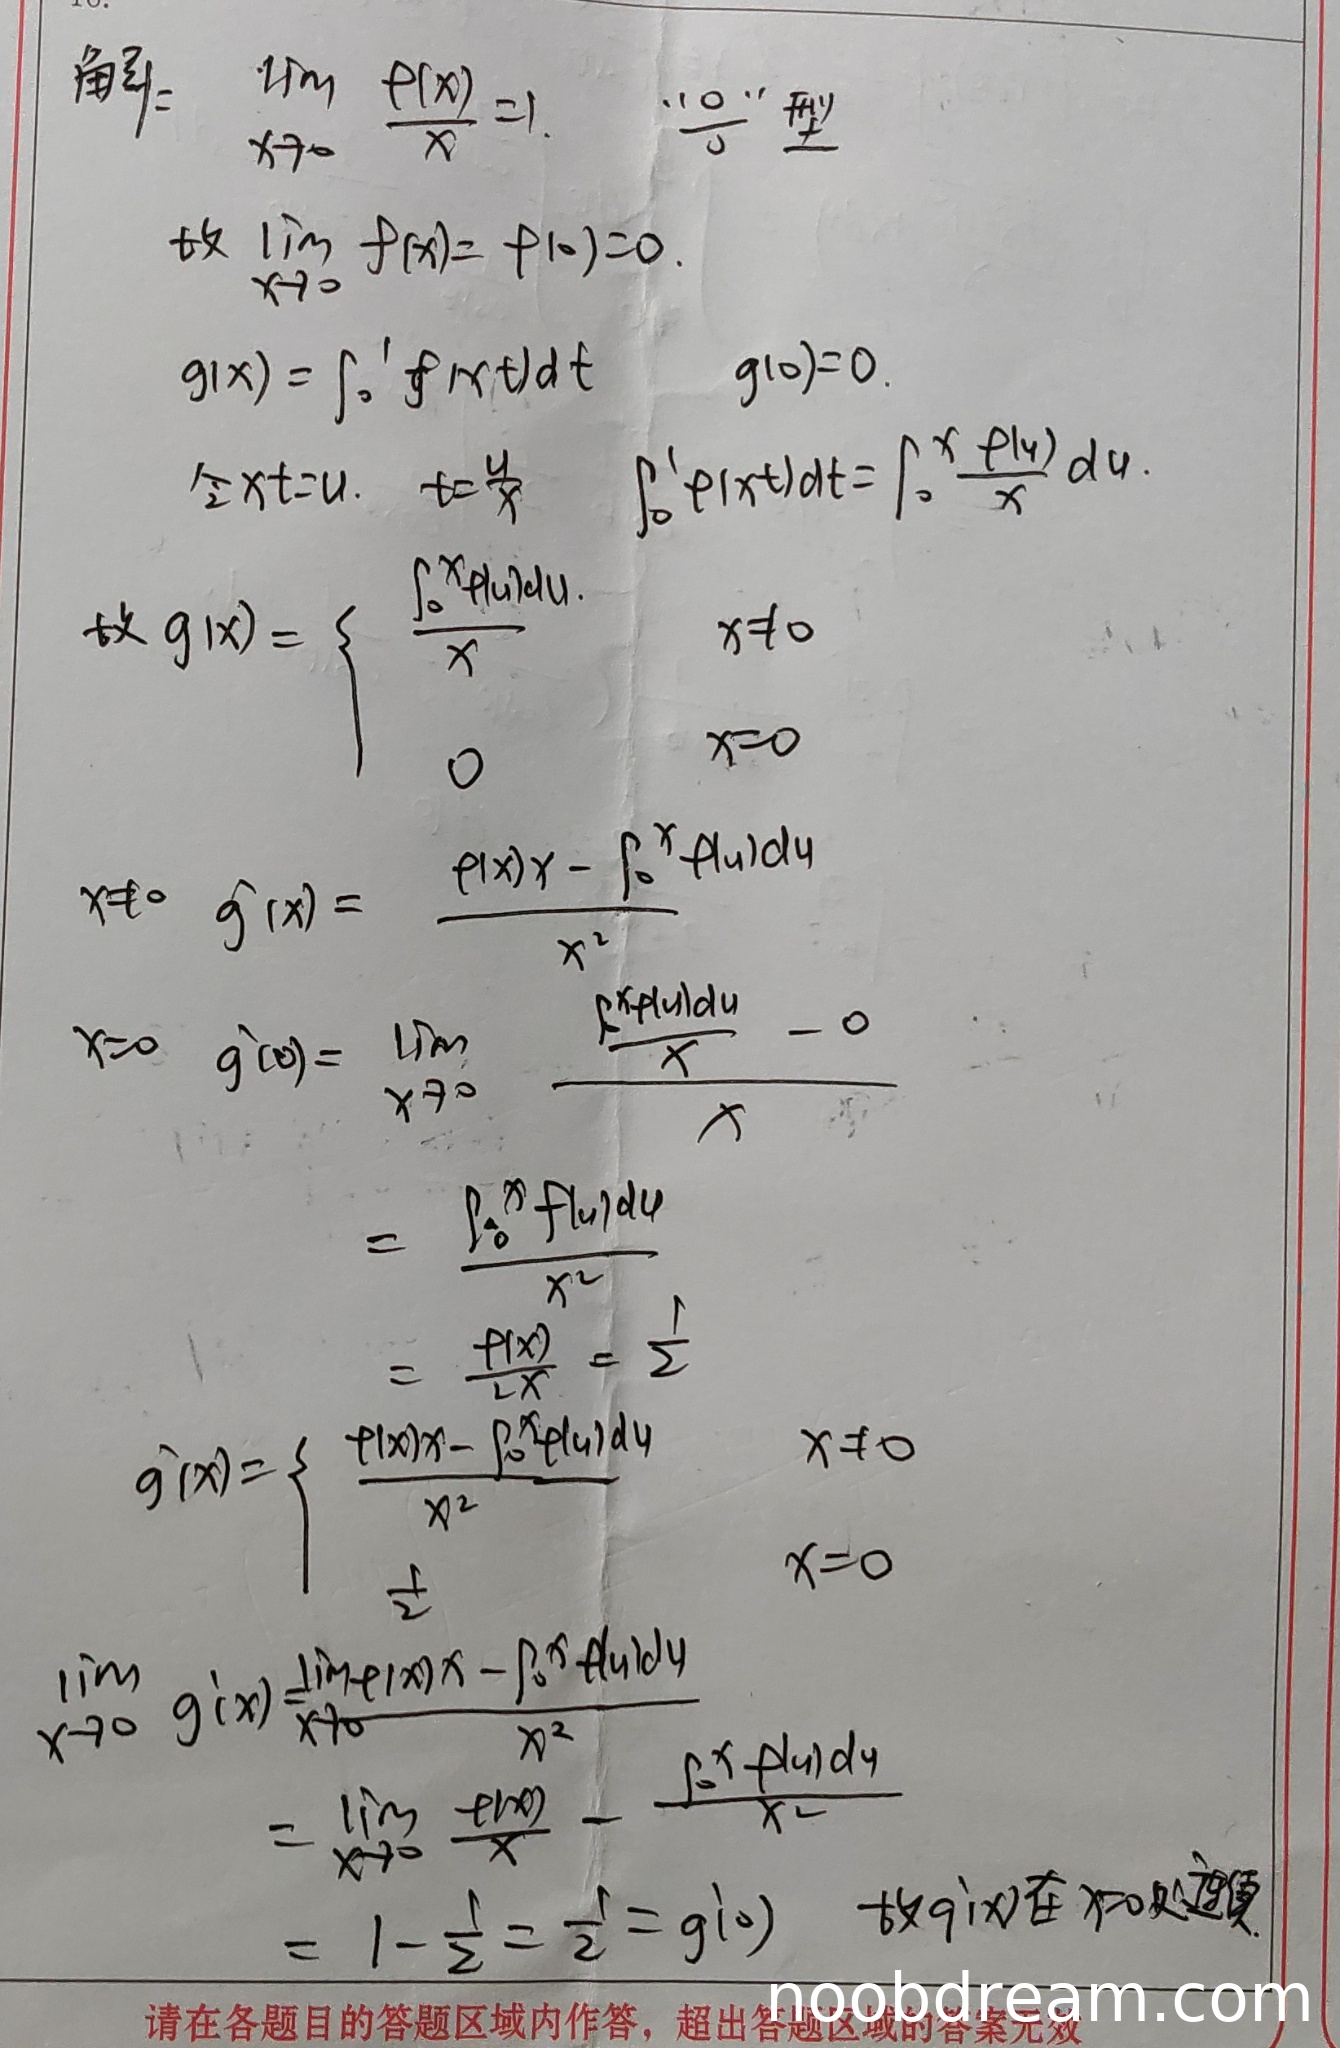 解: lim x→0 f(x)/x = 1. "0/0" 型
故 lim x→0 f(x) = f(0) = 0.
g(x) = ∫₀¹ f(xt)dt g(0) = 0.
令 xt = u. t = u/x ∫₀¹ f(xt)dt = ∫₀ˣ f(u)/x du.
故 g(x) = { ∫₀ˣ f(u)du. / x x≠0
0 x=0
x≠0 g'(x) = (f(x)x - ∫₀ˣ f(u)du) / x²
x=0 g'(0) = lim x→0 (∫₀ˣ f(u)du / x - 0) / x
= ∫₀ˣ f(u)du / x²
= f(x)/2x = 1/2
g'(x) = { (f(x)x - ∫₀ˣ f(u)du) / x² x≠0
1/2 x=0
lim x→0 g'(x) = lim x→0 (f(x)x - ∫₀ˣ f(u)du) / x²
= lim x→0 f(x)/x - ∫₀ˣ f(u)du / x²
= 1 - 1/2 = 1/2 = g'(0) 故 g'(x) 在 x=0 处连续.
请在各题目的答题区域内作答，超出答题区域的答案无效
noobdream.com